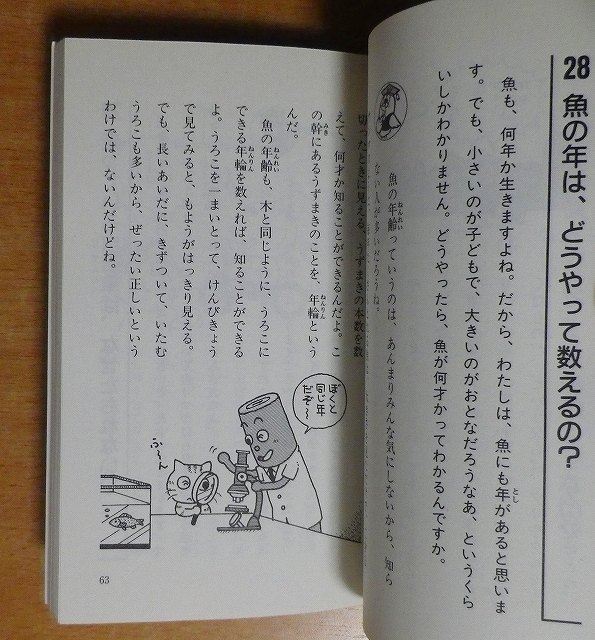 28 魚の年は、どうやって数えるの?
魚も、何年か生きますよね。だから、わたしは、魚にも年があると思いま
とし
す。でも、小さいのが子どもで、大きいのがおとなだろうなあ、というくら
いしかわかりません。どうやったら、魚が何才かってわかるんですか。
魚の年齢っていうのは、あんまりみんな気にしないから、知ら
ねんれい
ない人が多いだろうね。
切ったときに見える、うずまきの本数を数
えて、何才か知ることができるんだよ。こ
の幹にあるうずまきのことを、年輪という
みき
ねんりん
んだ。
魚の年齢も、木と同じように、うろこに
ねんれい
できる年輪を数えれば、知ることができる
ねんりん
よ。うろこを一まいとって、けんびきょう
で見てみると、もようがはっきり見える。
でも、長いあいだに、きずついて、いたむ
うろこも多いから、ぜったい正しいという
わけでは、ないんだけどね。
ぼくと
同じ年
だぞ〜
ふ〜ん
63